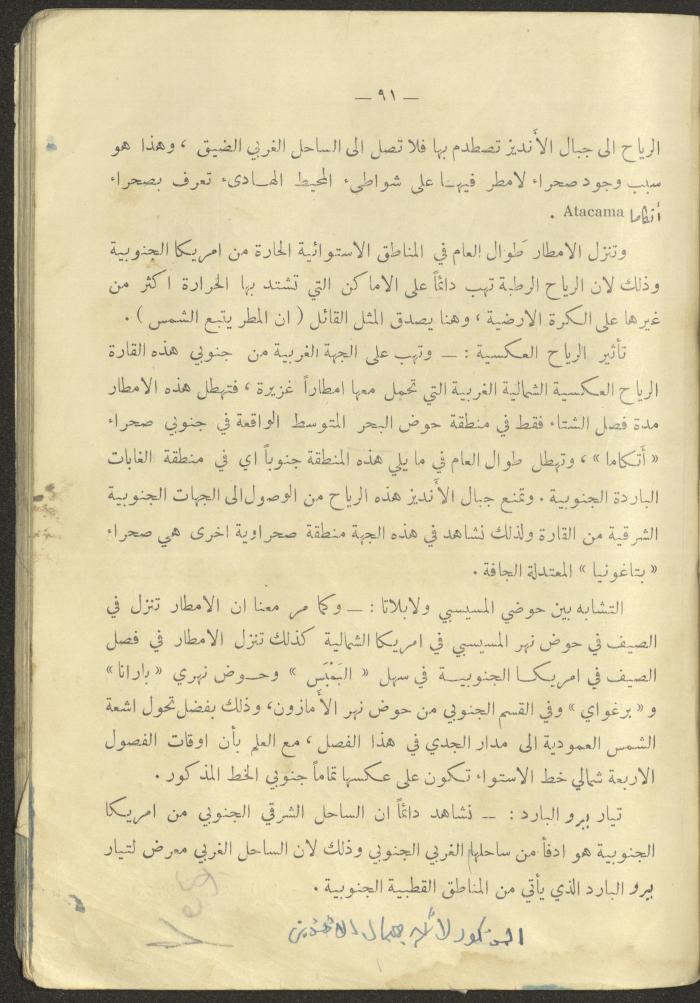 — ٩١ —
الرياح الى جبال الأنديز تصطدم بها فلا تصل الى الساحل الغربي الضيق ، وهذا هو
سبب وجود صحراء لامطر فيهـا على شواطىء المحيط الهـادىء تعرف بصحراء
أتكاما Atacama .
وتنزل الامطار طوال العام في المناطق الاستوائية الحارة من امريكا الجنوبية
وذلك لان الرياح الرطبة تهب دائماً على الاماكن التي تشتد بها الحرارة اكثر من
غيرها على الكرة الارضية ، وهنا يصدق المثل القائل ( ان المطر يتبع الشمس ) .
تأثير الرياح العـكسية : — وتهب على الجهة الغربية من جنوبي هذه القارة
الرياح العـكسية الشمالية الغربية التي تحمل معها امطاراً غزيرة ، فتهطل هذه الامطار
مدة فصل الشتاء فقط في منطقة حوض البحر المتوسط الواقعة في جنوبي صحراء
« أتكاما » ، وتهطل طوال العام في ما يلي هذه المنطقة جنوباً اي في منطقة الغابات
الباردة الجنوبية . وتمنع جبال الأنديز هذه الرياح من الوصول الى الجهات الجنوبية
الشرقية من القارة ولذلك نشاهد في هذه الجهة منطقة صحراوية اخرى هي صحراء
« بتاغونيا » المعتدلة الجافة .
التشابه بين حوضي المسيسبي ولابلاتا : — وكما مر معنا ان الامطار تنزل في
الصيف في حوض نهر المسيسبي في امريكا الشمالية كذلك تنزل الامطار في فصل
الصيف في امريكـا الجنوبيـة في سهل « البَمْبَس » وحـوض نهري « بارانا »
و « برغواي » وفي القسم الجنوبي من حوض نهر الأمازون، وذلك بفضل تحول اشعة
الشمس العمودية الى مدار الجدي في هذا الفصل ، مع العلم بأن اوقات الفصول
الاربعة شمالي خط الاستواء تـكون على عـكسها تماماً جنوبي الخط المذكور .
تيار بيرو البارد : — نشاهد دائماً ان الساحل الشرقي الجنوبي من امريكا
الجنوبية هو ادفأ من ساحلها الغربي الجنوبي وذلك لان الساحل الغربي معرض لتيار
بيرو البارد الذي يأتي من المناطق القطبية الجنوبية .